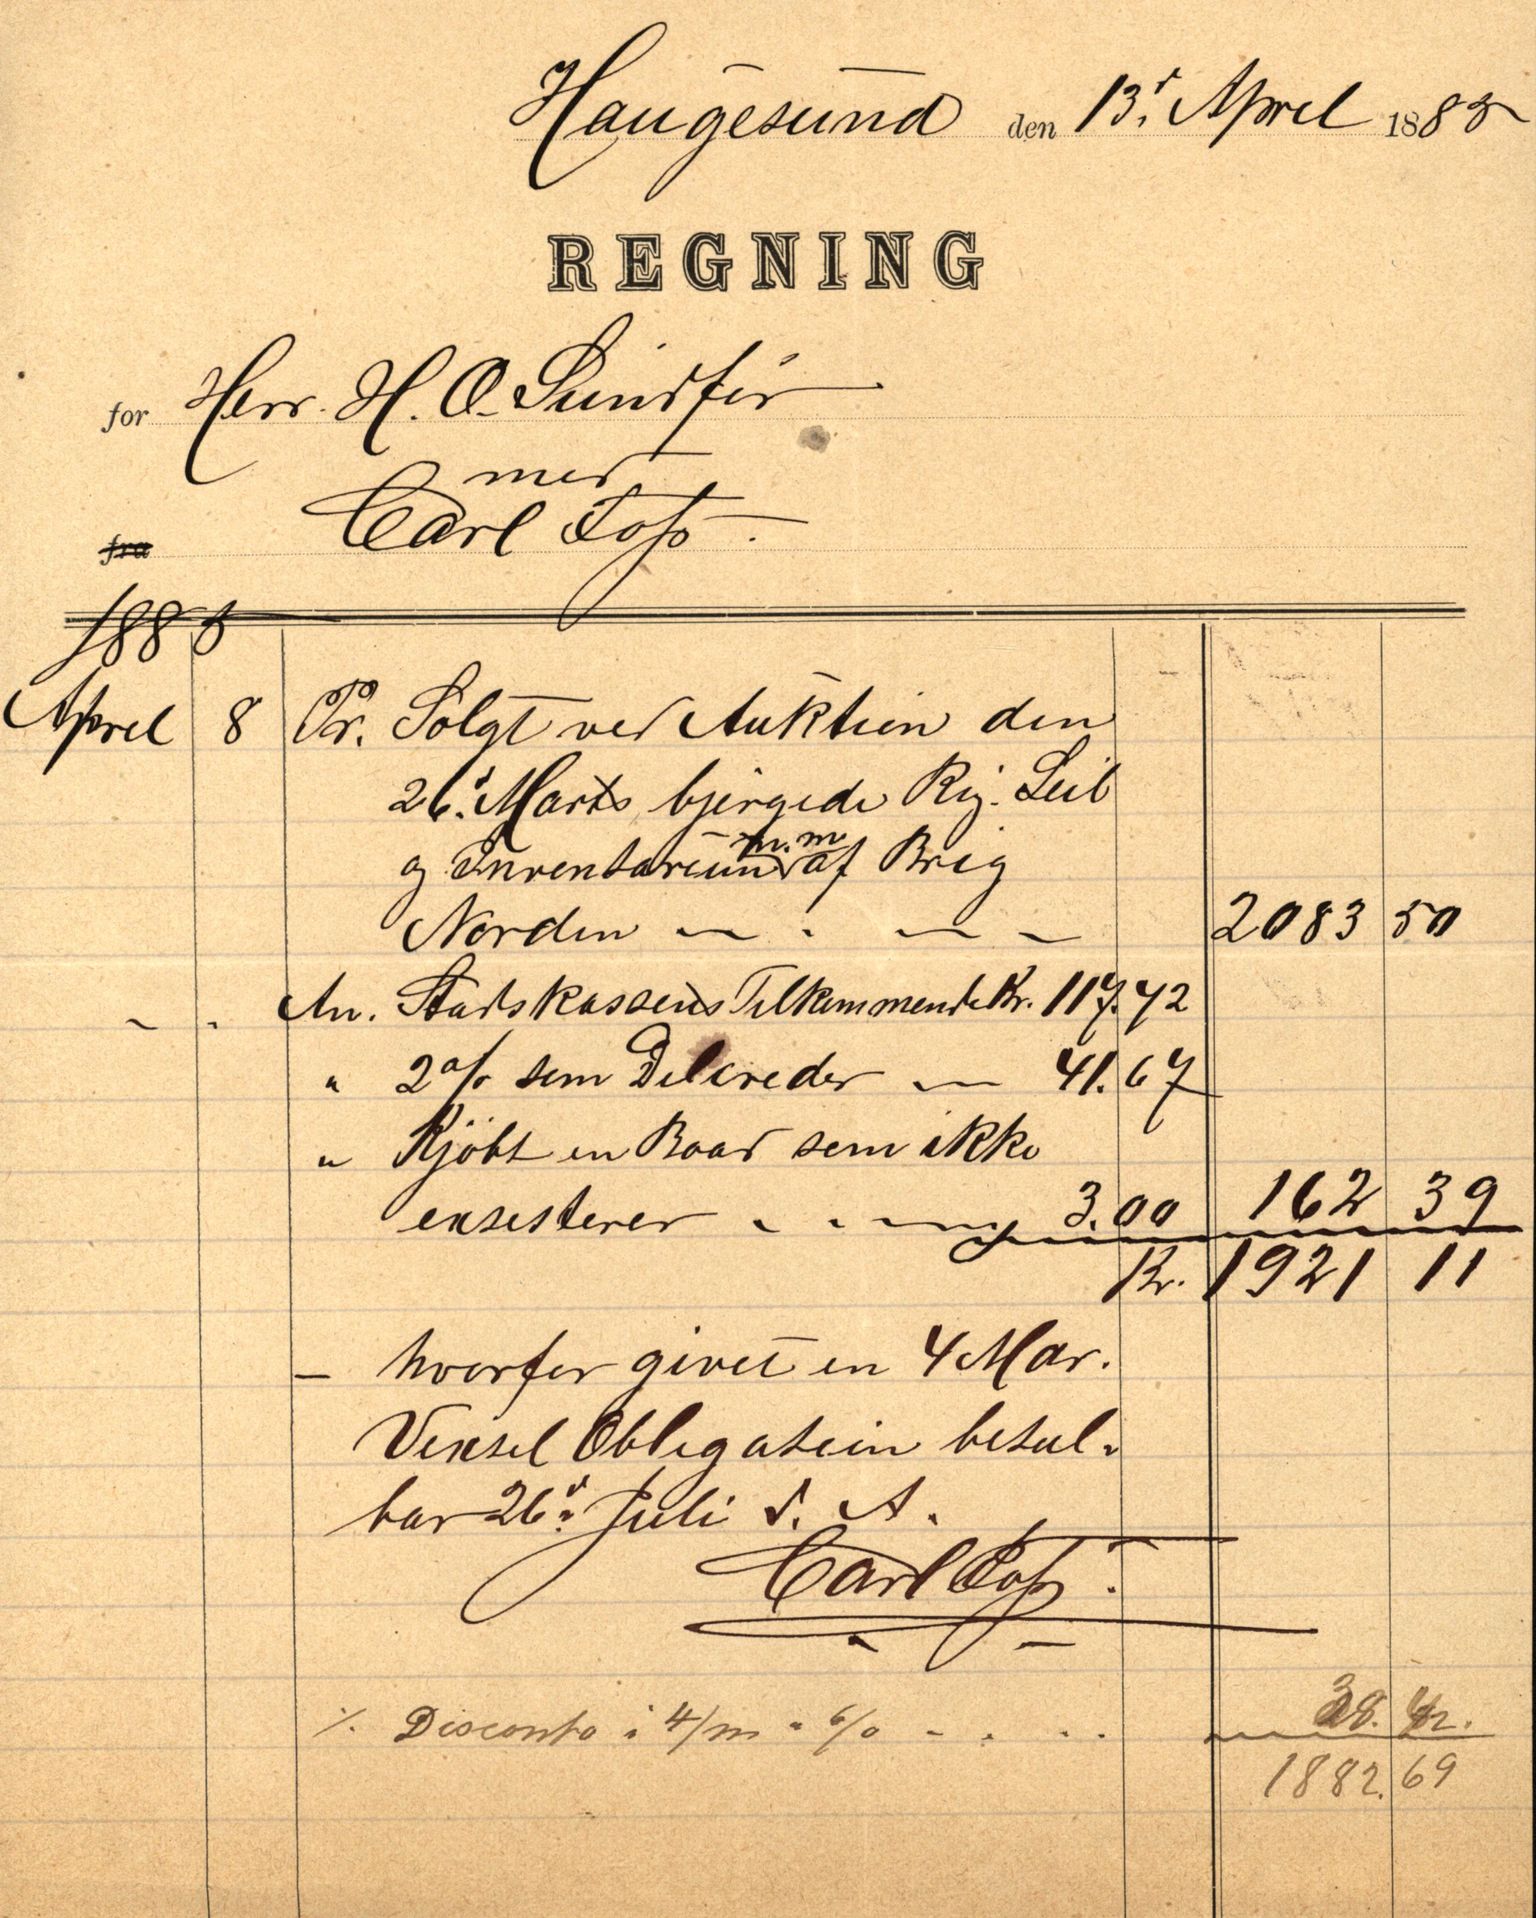 Haugesund den 13' April 1885
REGNING
for Herr. H. O. Sundför
med
fra Carl Foss.
1885
April 8 Pr. Solgt ved Auktion den
26' Marts bjergede Rig. Seil
og Inventarium m.m af Brig
Norden 2083 50
An. Stadskassens Tilkommende Kr. 117.72
" 2 o/o som Delcreder 41.67
" Kjöbt en Baad som ikke
exsisterer 3.00 162 39
Kr. 1921 11
- hvorfor givet en 4 Mdr.
Vexsel Obligation betal-
bar 26' Juli d. A.
Carl Foss.
./. Disconto i 4/m a 6/o 38. 42.
1882.69